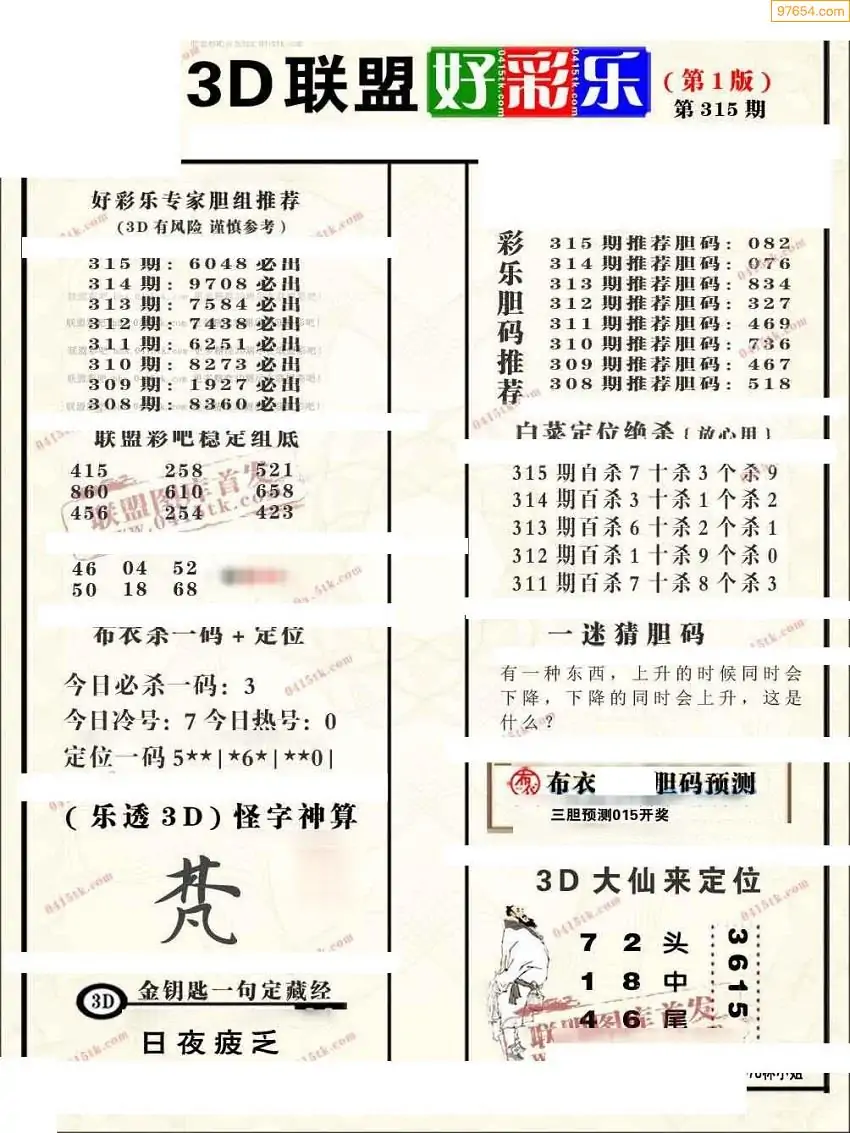 97654.com
3D联盟 好彩乐 (第1版)
第315期
好彩乐专家胆组推荐
(3D有风险 谨慎参考)
315期: 6048必出
314期: 9708必出
313期: 7584必出
312期: 7438必出
311期: 6251必出
310期: 8273必出
309期: 1927必出
308期: 8360必出
联盟彩吧稳定组底
415 258 521
860 610 658
456 254 423
联盟图库首发
www.0415tk.com
46 04 52
50 18 68
布衣杀一码+定位
今日必杀一码: 3
今日冷号: 7 今日热号: 0
定位一码5**|*6*|**0|
(乐透3D)怪字神算
梵
3D 金钥匙一句定藏经
日夜疲乏
彩乐胆码推荐
315期推荐胆码: 082
314期推荐胆码: 076
313期推荐胆码: 834
312期推荐胆码: 327
311期推荐胆码: 469
310期推荐胆码: 736
309期推荐胆码: 467
308期推荐胆码: 518
白菜定位绝杀{放心用}
315期百杀7十杀3个杀9
314期百杀3十杀1个杀2
313期百杀6十杀2个杀1
312期百杀1十杀9个杀0
311期百杀7十杀8个杀3
一迷猜胆码
有一种东西，上升的时候同时会
下降，下降的同时会上升，这是
什么？
布衣 胆码预测
三胆预测015开奖
3D大仙来定位
7 2 头
1 8 中
4 6 尾
3615
联盟图库首发
0415tk.com